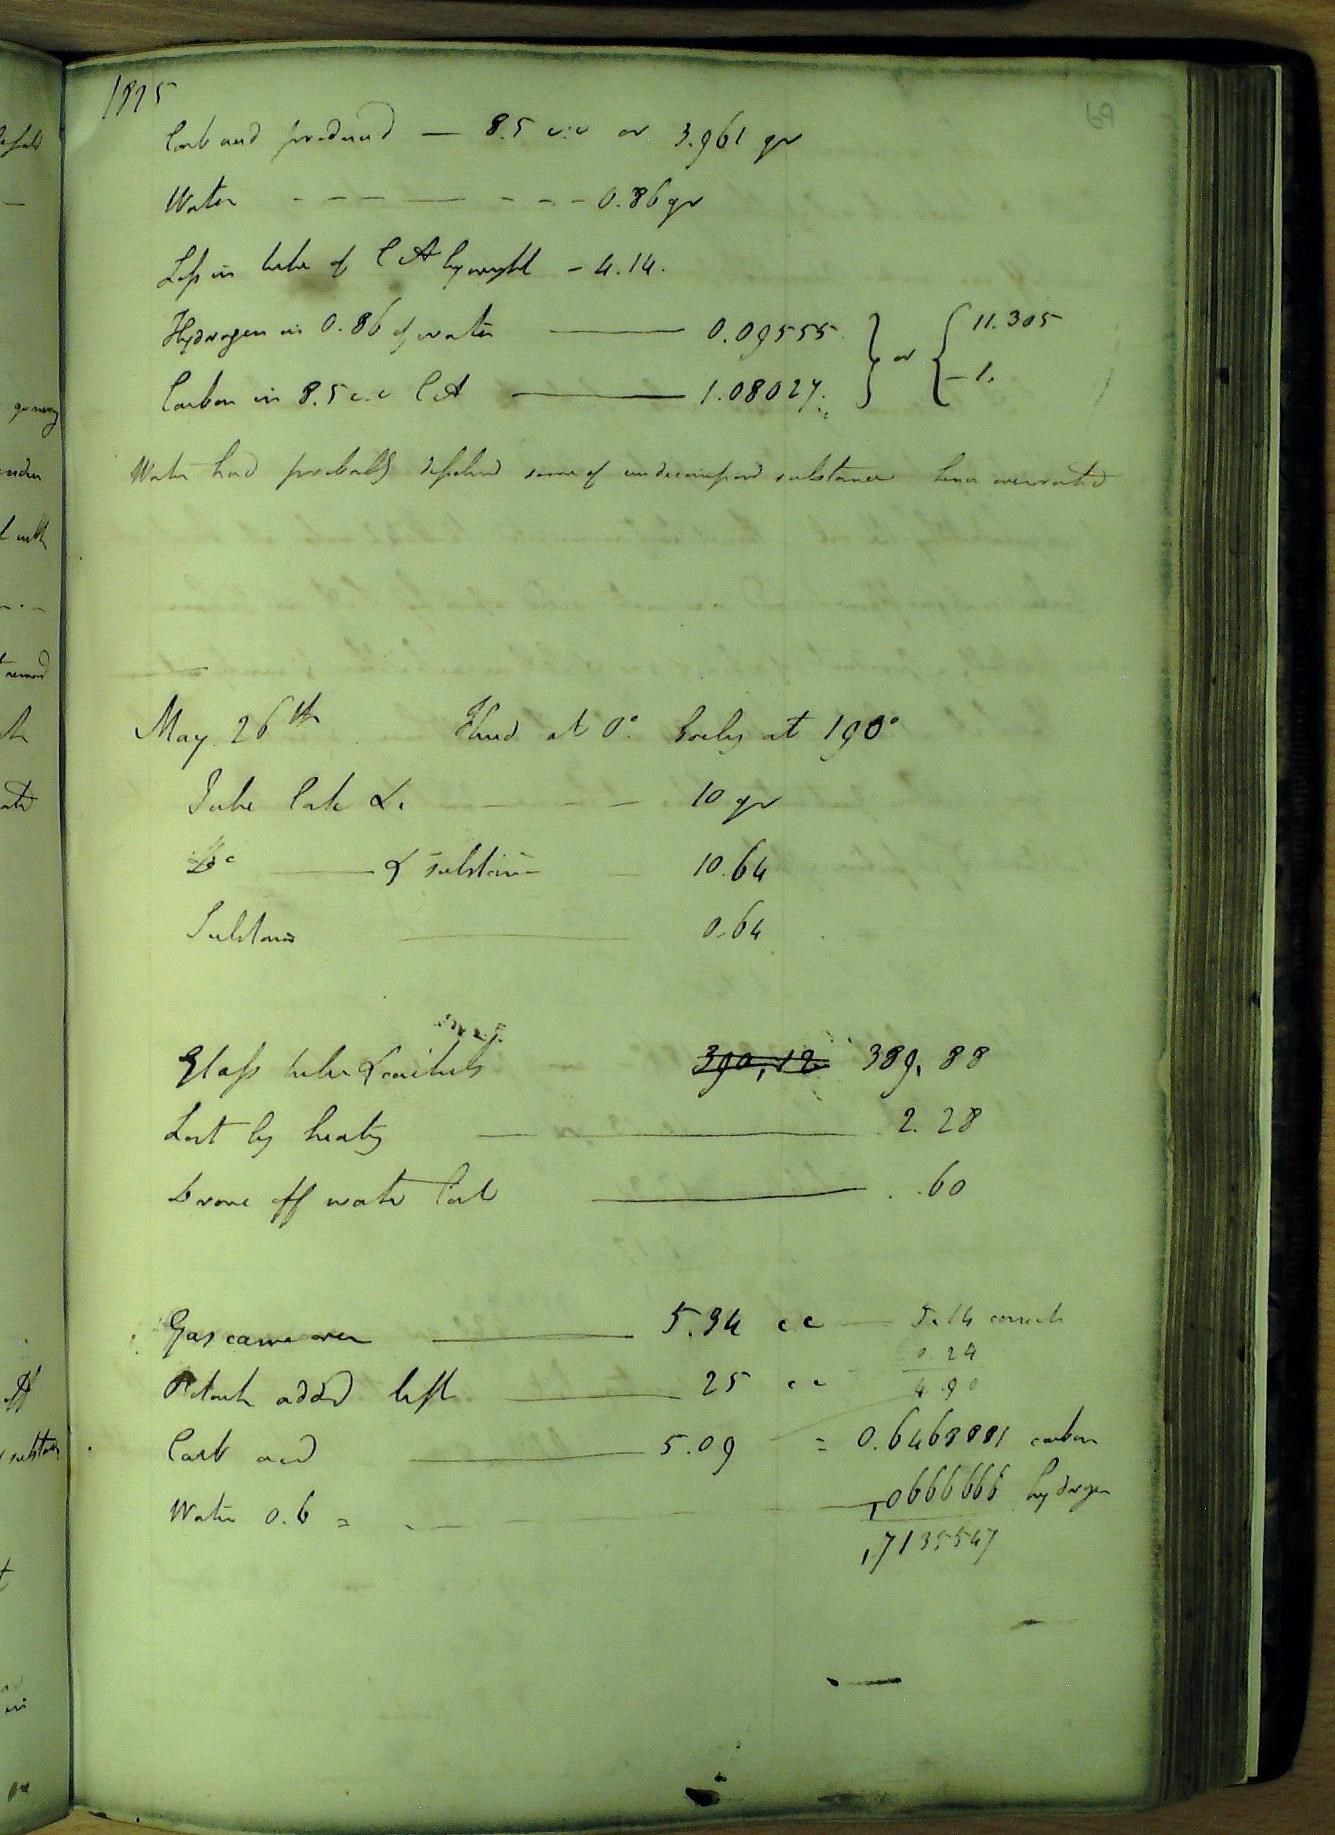 1825
Carb acid produced — 8.5 c:c or 3.961 gr
Water - - - — - - - 0.86 gr
Loss in tube of C A by weight - 4.14.
Hydrogen in 0.86 of water — 0.09555 } or { 11.305
Carbon in 8.5 c.c C A — 1.08027. - 1.
Water had probably dissolved some of undecomposed substance hence overrated
May 26th Fluid at 0° boils at 190°
Tube Cork &c - - - 10 gr
Do — & substance - 10.64
Substance — 0.64
Glass tube & contents 390,12 389.88
Lost by heating — 2.28
Drove off water lost — .60
Gas came over — 5.34 cc — 5.14 correct
0.24
Potash added left — 25 cc 4.90
Carb acid — 5.09 = 0.6468881 carbon
Water 0.6 = - — ,0666666 hydrogen
,7135547